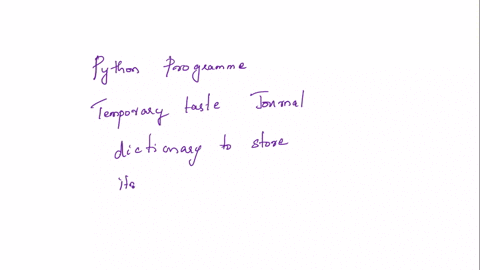 Python Programme
Temporary taste Jornal
dictionary to store
its